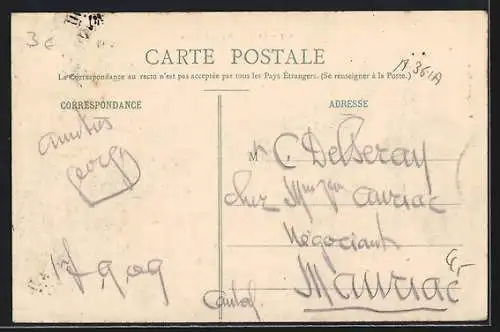 3 €
CARTE POSTALE
La Correspondance au recto n'est pas acceptée par tous les Pays Étrangers. (Se renseigner à la Poste.)
A.361A
CORRESPONDANCE
ADRESSE
Amitiés
Georges
M C. Delberay
chez Auriac
Négociant
Mauriac
4,-
17, 9, 09
Cantal